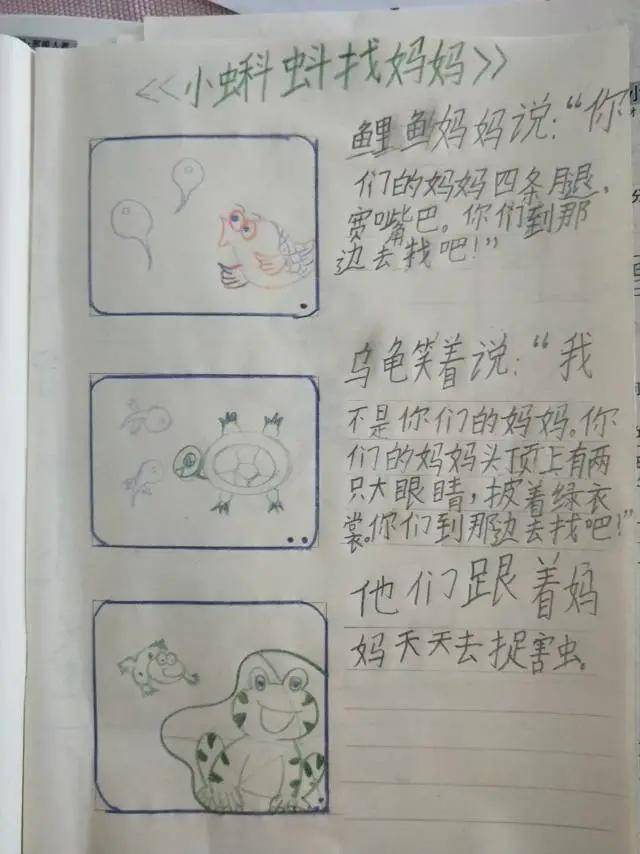 《小蝌蚪找妈妈》
鲤鱼妈妈说：“你
们的妈妈四条腿，
宽嘴巴。你们到那
边去找吧！”
乌龟笑着说：“我
不是你们的妈妈。你
们的妈妈头顶上有两
只大眼睛，披着绿衣
裳。你们到那边去找吧！”
他们跟着妈
妈天天去捉害虫。